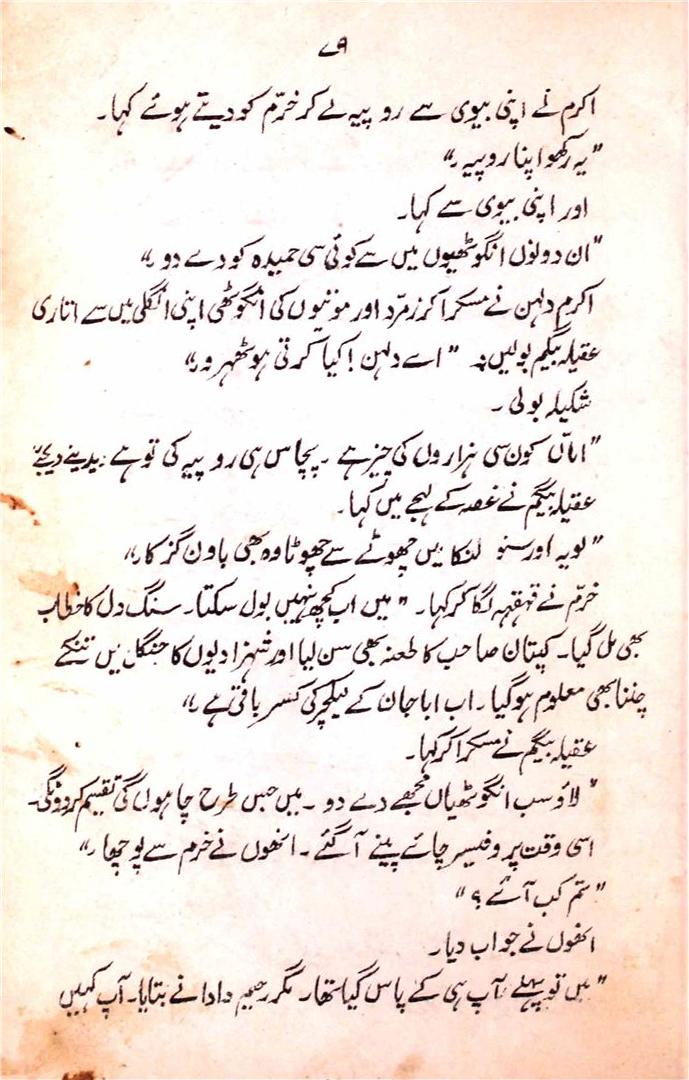 ۷۹
اکرم نے اپنی بیوی سے روپیہ لے کر خرّم کو دیتے ہوئے کہا۔
"یہ رکھو اپنا روپیہ۔"
اور اپنی بیوی سے کہا۔
"ان دونوں انگوٹھیوں میں سے کوئی سی حمیدہ کو دے دو۔"
اکرم دلہن نے مسکرا کر زمرّد اور موتیوں کی انگوٹھی اپنی انگلی میں سے اتاری
عقیلہ بیگم بولیں۔ "اے دلہن! کیا کرتی ہو ٹھہرو۔"
شکیلہ بولی۔
"اماں کون سی ہزاروں کی چیز ہے۔ پچاس ہی روپیہ کی تو ہے۔ دیدینے دیجئے
عقیلہ بیگم نے غصہ کے لہجے میں کہا۔
"لو یہ اور سنو لنکا میں چھوٹے سے چھوٹا وہ بھی باون گز کا۔"
خرّم نے قہقہہ لگا کر کہا۔ "میں اب کچھ نہیں بول سکتا۔ سنگ دل کا خطاب
بھی مل گیا۔ کپتان صاحب کا طعنہ بھی سن لیا اور شہزادیوں کا جنگل میں تنکے
چننا بھی معلوم ہو گیا۔ اب ابا جان کے لیکچر کی کسر باقی ہے۔"
عقیلہ بیگم نے مسکرا کر کہا۔
"لاؤ سب انگوٹھیاں مجھے دے دو۔ میں جس طرح چاہوں گی تقسیم کر دونگی۔
اسی وقت پروفیسر چائے پینے آ گئے۔ انھوں نے خرم سے پوچھا۔"
"تم کب آئے؟"
انھوں نے جواب دیا۔
"میں تو پہلے آپ ہی کے پاس گیا تھا۔ مگر رحیم دادا نے بتایا۔ آپ کہیں